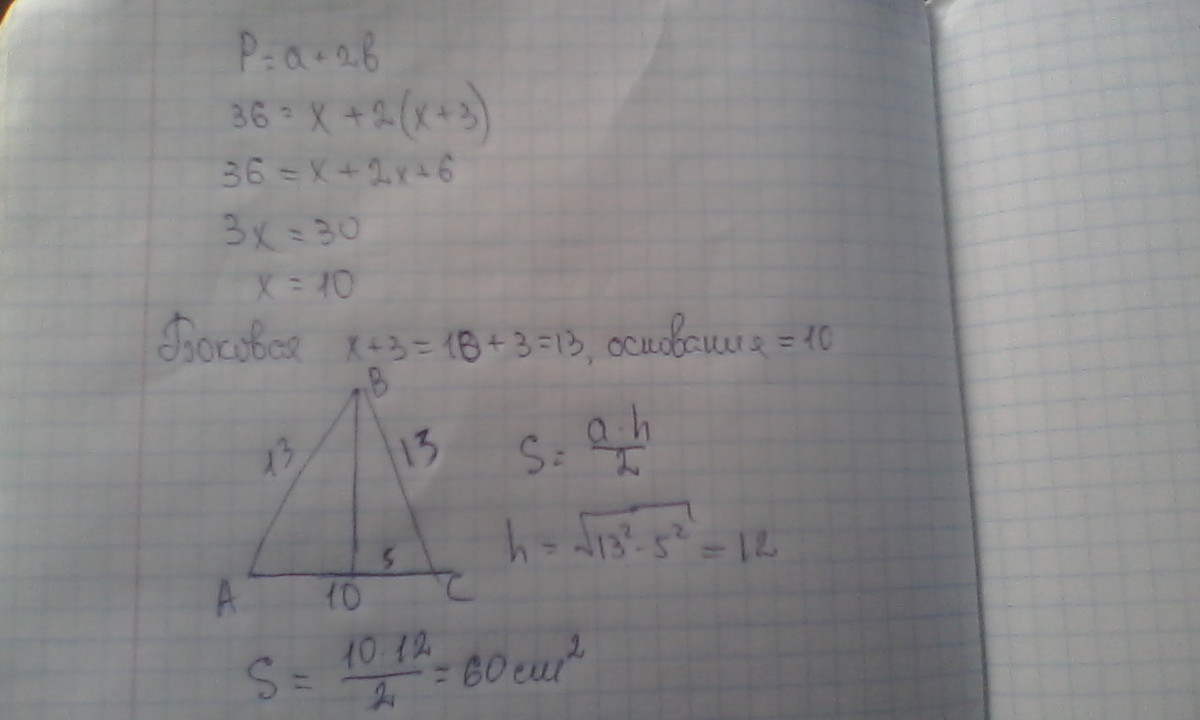 P = a + 2b
36 = x + 2(x+3)
36 = x + 2x + 6
3x = 30
x = 10
Боковая x+3 = 10 + 3 = 13, основания = 10
B
13 13
S = a·h/2
h = √13² - 5² = 12
5
A 10 C
S = 10·12/2 = 60 см²